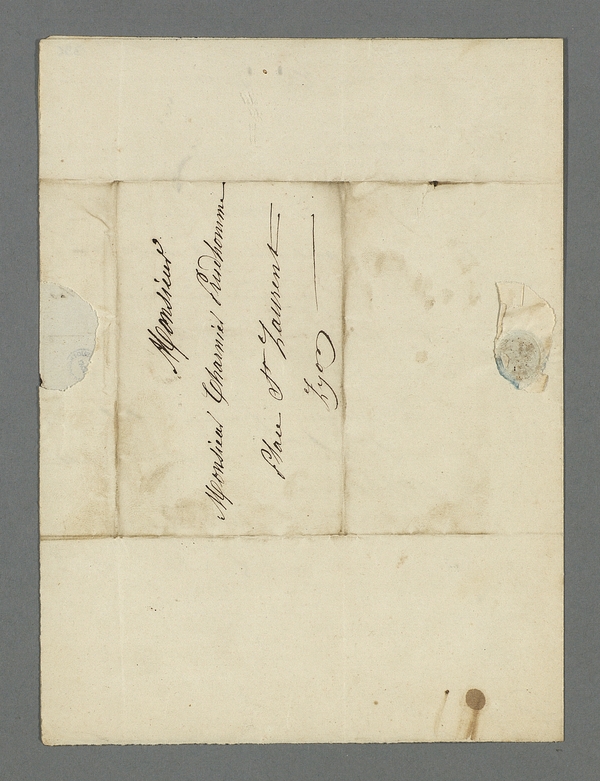 Monsieur
Monsieur Charnier Prudhomme
Place St Laurent
Lyon